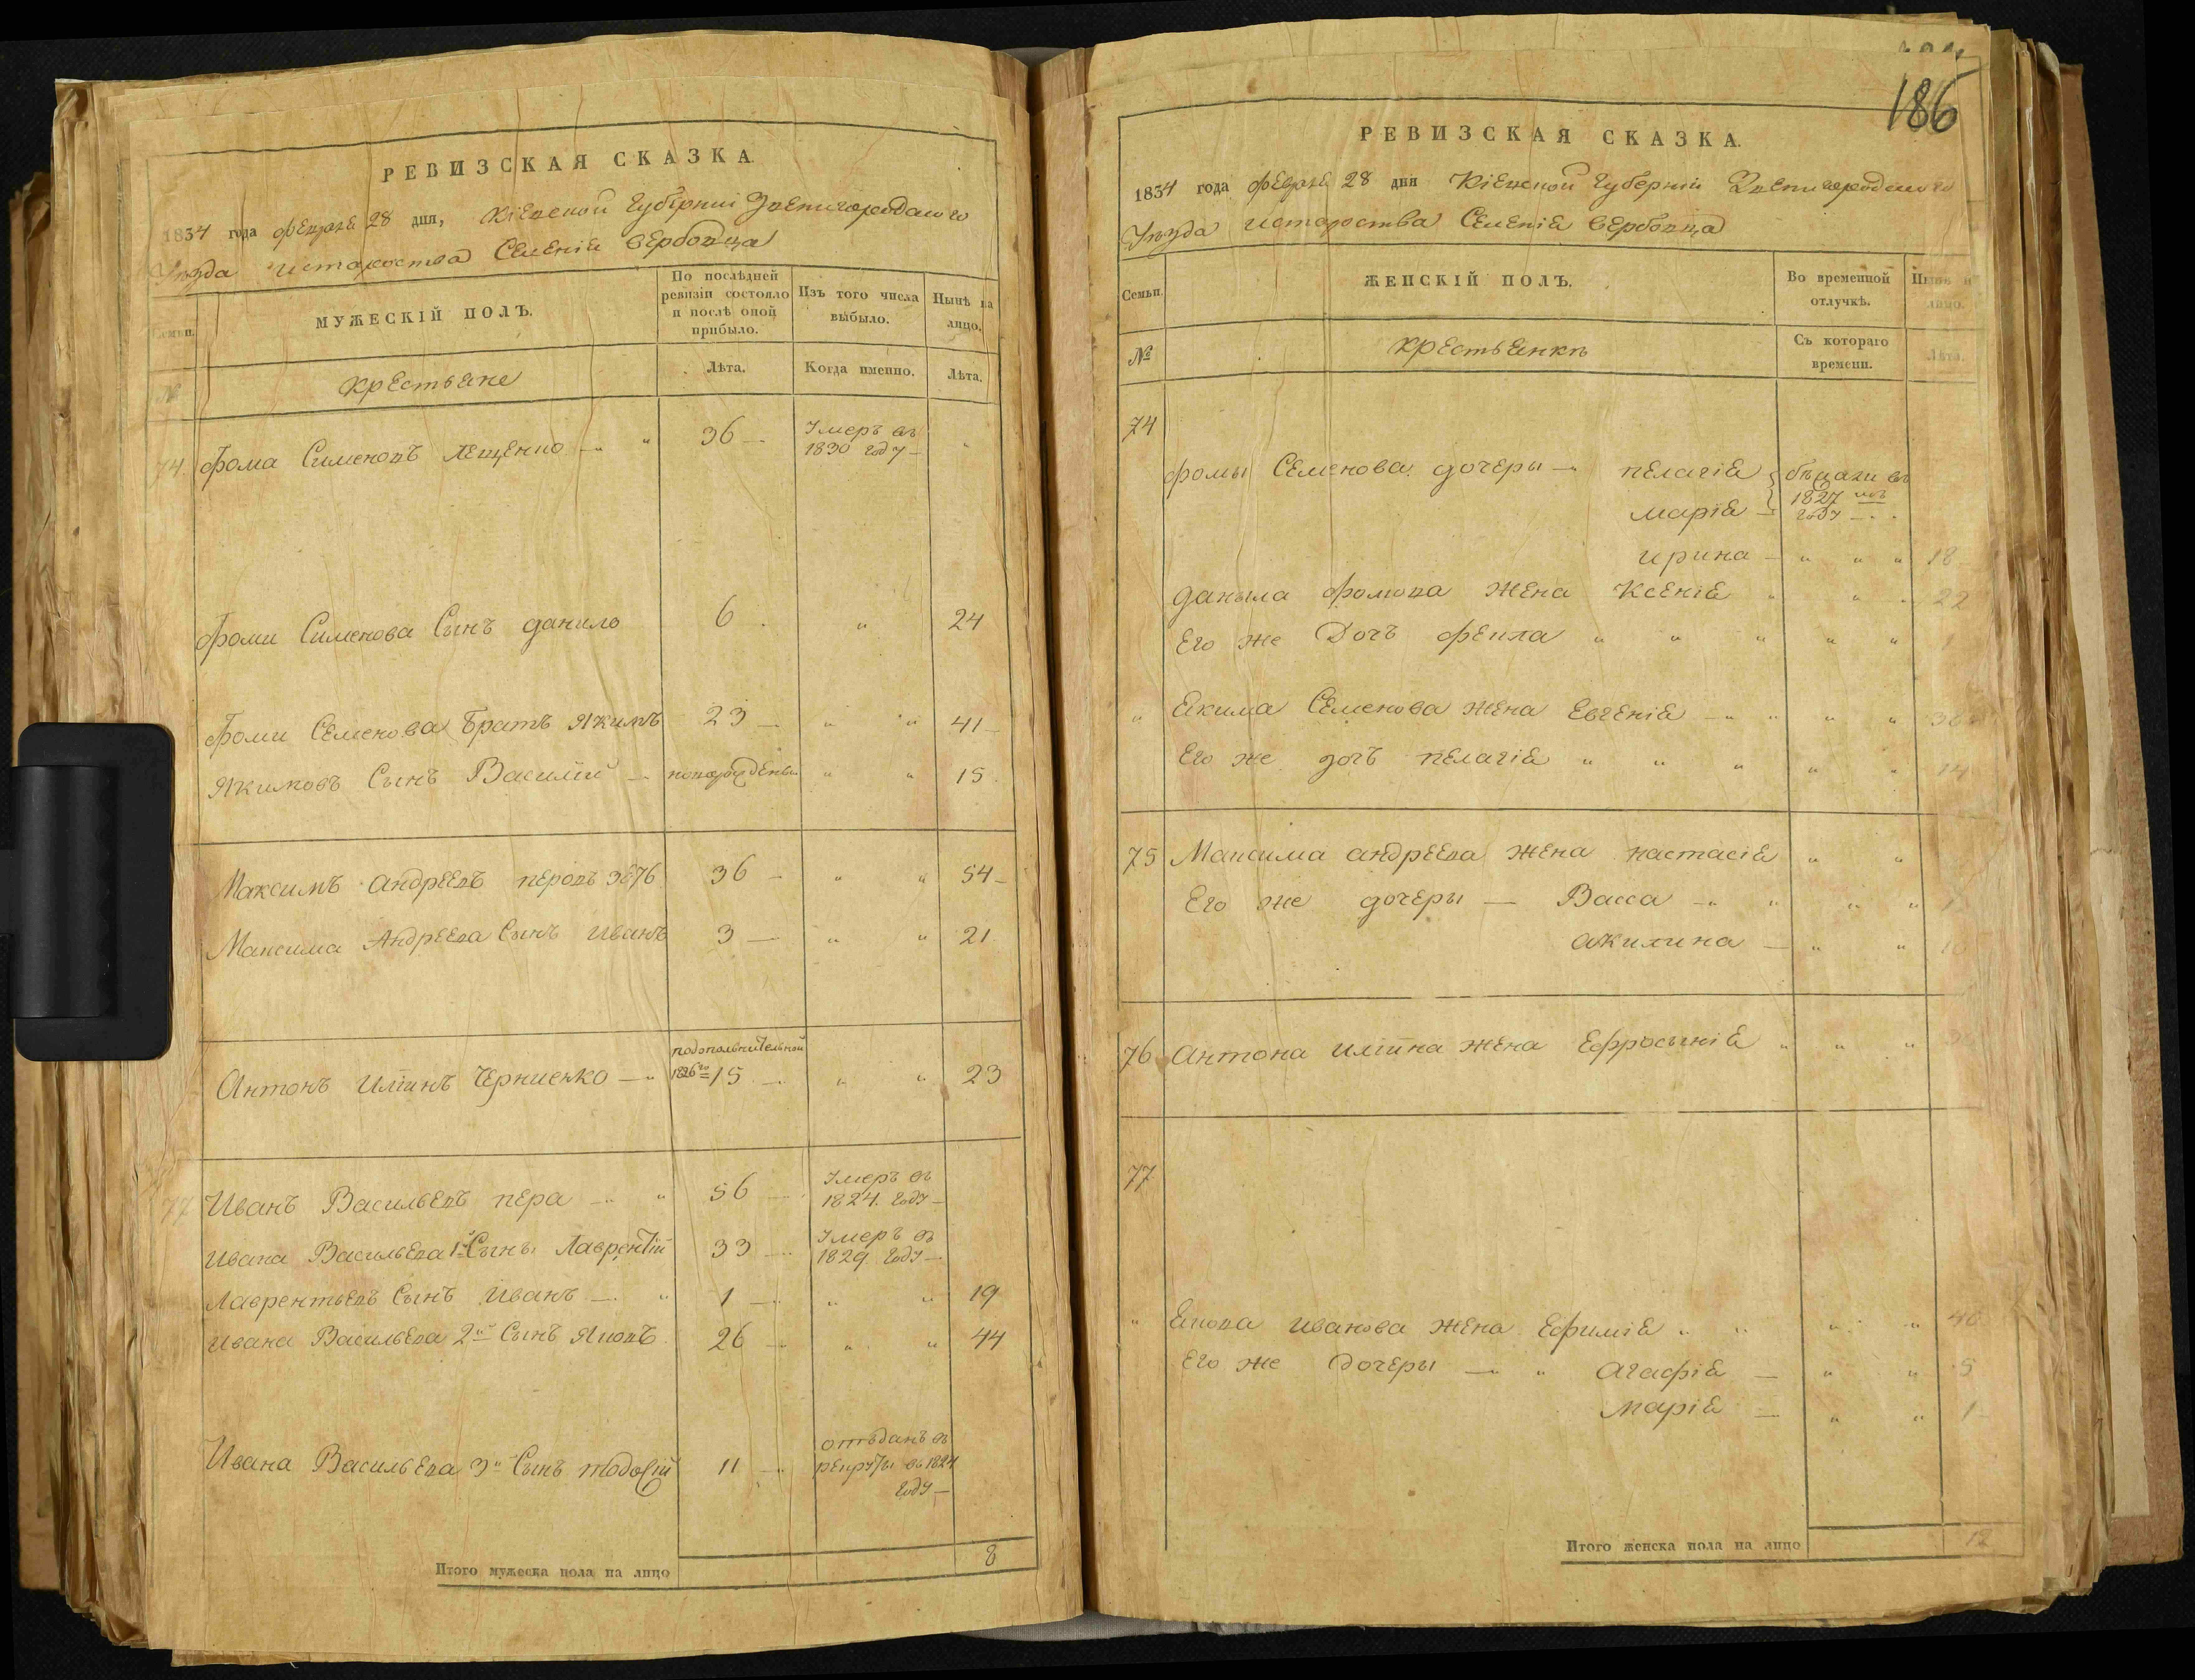 РЕВИЗСКАЯ СКАЗКА.
1834 года февраля 28 дня, Кіевской Губерніи Звенигородского
Уѣзда и староства Селенія Вербовца
Семьи.
МУЖЕСКІЙ ПОЛЪ.
По послѣдней ревизіи состояло и послѣ оной прибыло.
Изъ того числа выбыло.
Нынѣ на лицо.
№
крестьяне
Лѣта.
Когда именно.
Лѣта.
74. Фома Сименовъ Лещенко — " 36 — Умеръ въ 1830 году — "
Фоми Сименова Сынъ данило 6 . " 24
Фоми Семенова Братъ Якимъ 23 — " " 41 —
Якимовъ Сынъ Василій — новорожденъ " " 15.
Максимъ андреевъ перовъ 36 — " " 54 —
Максима Андреева Сынъ иванъ 3 — " " 21.
Антонъ илїинъ Черниенко — " подополнительной 1826го 15 — " " 23
77 Иванъ Васильевъ пера — " " 56 — Умеръ въ 1824. году —
Ивана Васильева 1й Сынъ Лаврентій 33 — Умеръ въ 1829. году —
Лаврентьевъ Сынъ Иванъ — " 1 — " " 19
Ивана Васильева 2й Сынъ Яковъ 26 — " " 44
Ивана Васильева 3й Сынъ тодосій 11 — отъданъ въ рекруты въ 1824 году —
Итого мужеска пола на лицо 8
186
РЕВИЗСКАЯ СКАЗКА.
1834 года февраля 28 дня Кіевской Губерніи Звенигородского
Уѣзда и староства Селенія Вербовца
Семьи.
ЖЕНСКІЙ ПОЛЪ.
Во временной отлучкѣ.
Нынѣ на лицо.
№
крестьянкѣ
Съ котораго времени.
Лѣта.
74
фомы Семенова дочеры — " пелагія } бѣжали въ
марія — } 1827 мъ году — . .
ирина — " " " 18
даныла фомова жена Ксенія " " " 22
Его же Дочъ фекла " " " " " 1
" Якима Семенова жена Евгенія — " " " "
Его же дочъ пелагія " " " " " 14
75 Максима андреева жена настасія " "
Его же дочеры — Васса — " " " "
акилина — " " 10
76 Антона илїина жена Ефросынія " " "
77
" Якова иванова жена Ефимія " " " " 40
Его же Дочеры — " " Агафія — " " 5
Марія — " " 1 —
Итого женска пола на лицо 12